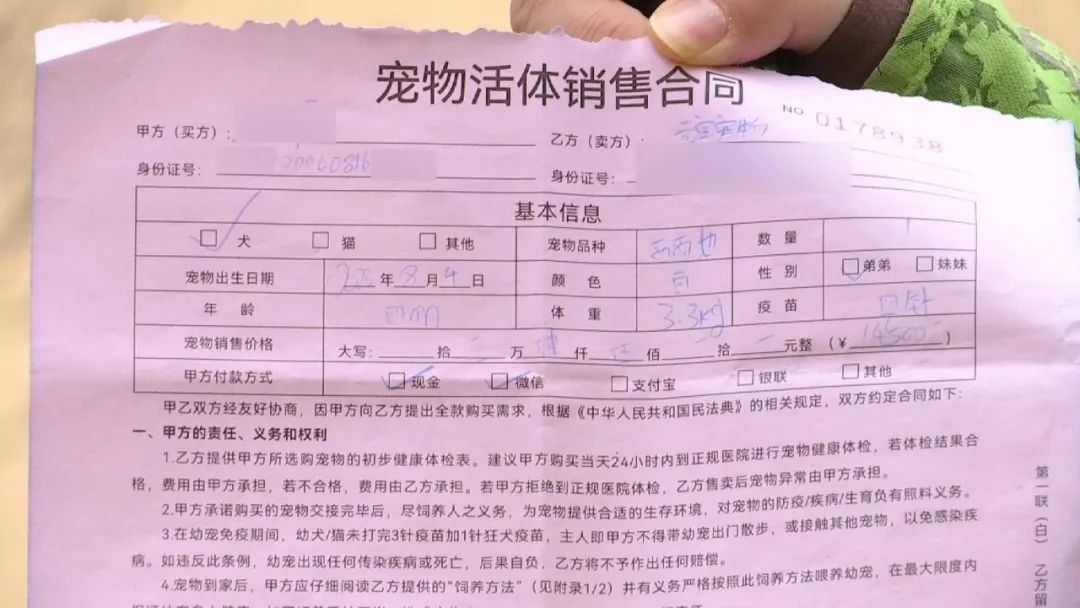 宠物活体销售合同
NO 0178938
甲方（买方）： 乙方（卖方）：
身份证号： 20060816 身份证号：
基本信息
□ 犬 □ 猫 □ 其他 宠物品种 西高地 数 量 1
宠物出生日期 2025 年 8 月 4 日 颜 色 白 性 别 □ 弟弟 □ 妹妹
年 龄 四个月 体 重 3.3kg 疫 苗 四针
宠物销售价格 大写： 拾 万 肆 仟 伍 佰 拾 元整 （¥ 14500 ）
甲方付款方式 □ 现金 □ 微信 □ 支付宝 □ 银联 □ 其他
甲乙双方经友好协商，因甲方向乙方提出全款购买需求，根据《中华人民共和国民法典》的相关规定，双方约定合同如下：
一、甲方的责任、义务和权利
1.乙方提供甲方所选购宠物的初步健康体检表。建议甲方购买当天24小时内到正规医院进行宠物健康体检，若体检结果合
格，费用由甲方承担，若不合格，费用由乙方承担。若甲方拒绝到正规医院体检，乙方售卖后宠物异常由甲方承担。
2.甲方承诺购买的宠物交接完毕后，尽饲养人之义务，为宠物提供合适的生存环境，对宠物的防疫/疾病/生育负有照料义务。
3.在幼宠免疫期间，幼犬/猫未打完3针疫苗加1针狂犬疫苗，主人即甲方不得带幼宠出门散步，或接触其他宠物，以免感染疾
病。如违反此条例，幼宠出现任何传染疾病或死亡，后果自负，乙方将不予作出任何赔偿。
4.宠物到家后，甲方应仔细阅读乙方提供的“饲养方法”（见附录1/2）并有义务严格按照此饲养方法喂养幼宠，在最大限度内
第一联（白） 乙方留